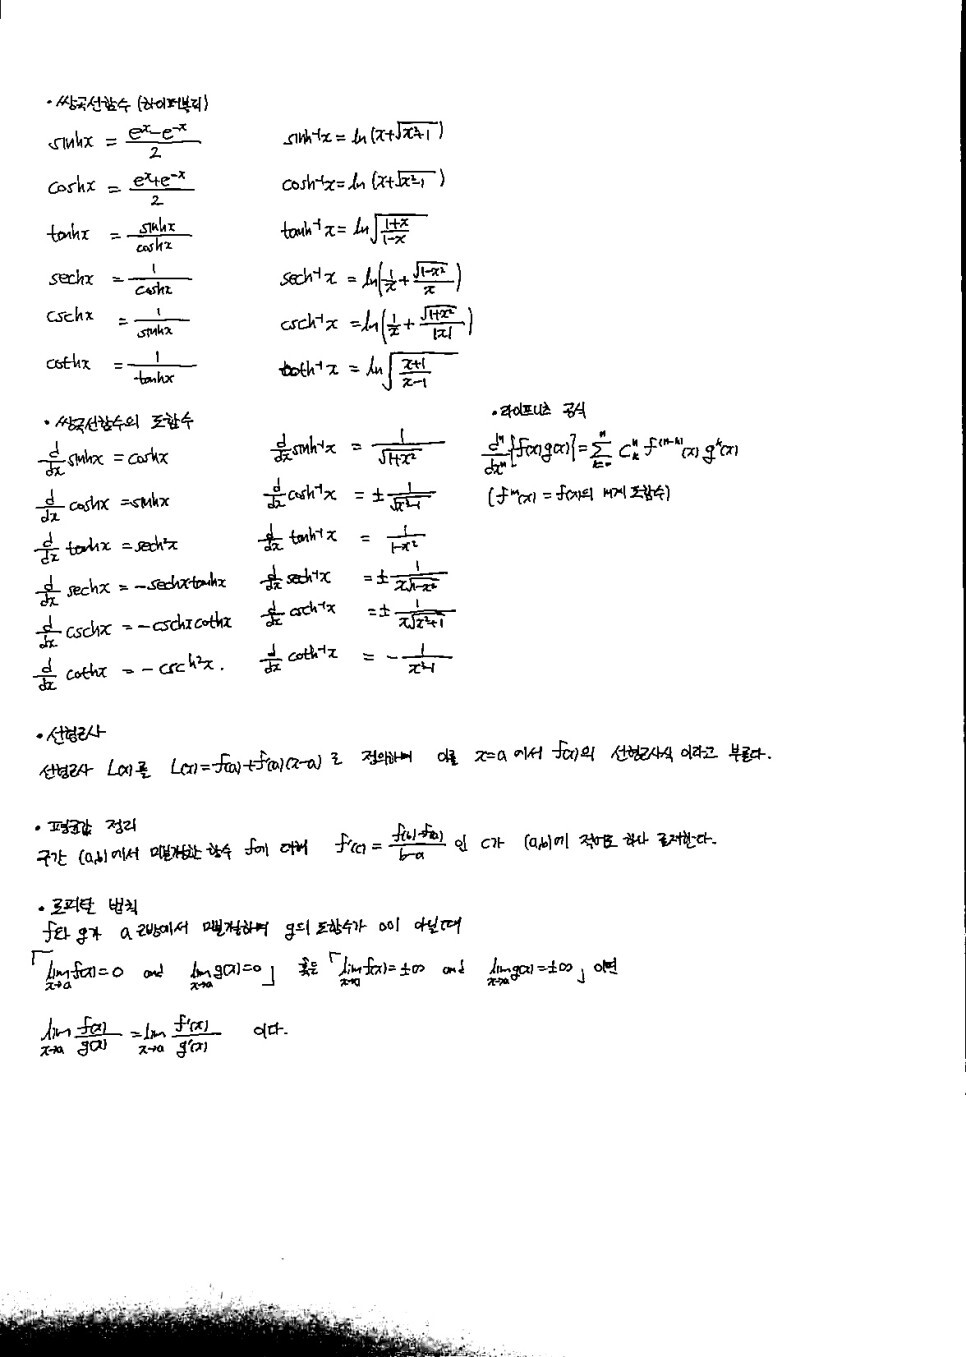 • 쌍곡선함수 (하이퍼볼릭)
sinhx = (e^x - e^-x)/2    sinh⁻¹x = ln(x+√(x²+1))
coshx = (e^x + e^-x)/2    cosh⁻¹x = ln(x+√(x²-1))
tanhx = sinhx/coshx    tanh⁻¹x = ln√((1+x)/(1-x))
sechx = 1/coshx    sech⁻¹x = ln(1/x + √(1-x²)/x)
cschx = 1/sinhx    csch⁻¹x = ln(1/x + √(1+x²)/|x|)
cothx = 1/tanhx    coth⁻¹x = ln√((x+1)/(x-1))
• 쌍곡선함수의 도함수
d/dx sinhx = coshx    d/dx sinh⁻¹x = 1/√(1+x²)
d/dx coshx = sinhx    d/dx cosh⁻¹x = ± 1/√(x²-1)
d/dx tanhx = sech²x    d/dx tanh⁻¹x = 1/(1-x²)
d/dx sechx = -sechxtanhx    d/dx sech⁻¹x = ± 1/(x√(1-x²))
d/dx cschx = -cschxcothx    d/dx csch⁻¹x = ± 1/(x√(x²+1))
d/dx cothx = -csch²x.    d/dx coth⁻¹x = - 1/(x²-1)
• 라이프니츠 공식
dⁿ/dxⁿ {f(x)g(x)} = Σ_{k=0}^{n} C^n_k f^(n-k)(x) g^k(x)
(fⁿ(x) = f(x)의 n계 도함수)
• 선형근사
선형근사 L(x)를 L(x)=f(a)+f'(a)(x-a)로 정의하며 이를 x=a에서 f(x)의 선형근사식이라고 부른다.
• 평균값 정리
구간 (a,b)에서 미분가능한 함수 f에 대해 f'(c) = (f(b)-f(a))/(b-a) 인 c가 (a,b)에 적어도 하나 존재한다.
• 로피탈 법칙
f와 g가 a 근방에서 미분가능하며 g의 도함수가 0이 아닐때
「lim_{x→a} f(x)=0 and lim_{x→a} g(x)=0」 혹은 「lim_{x→a} f(x)=±∞ and lim_{x→a} g(x)=±∞」이면
lim_{x→a} f(x)/g(x) = lim_{x→a} f'(x)/g'(x) 이다.